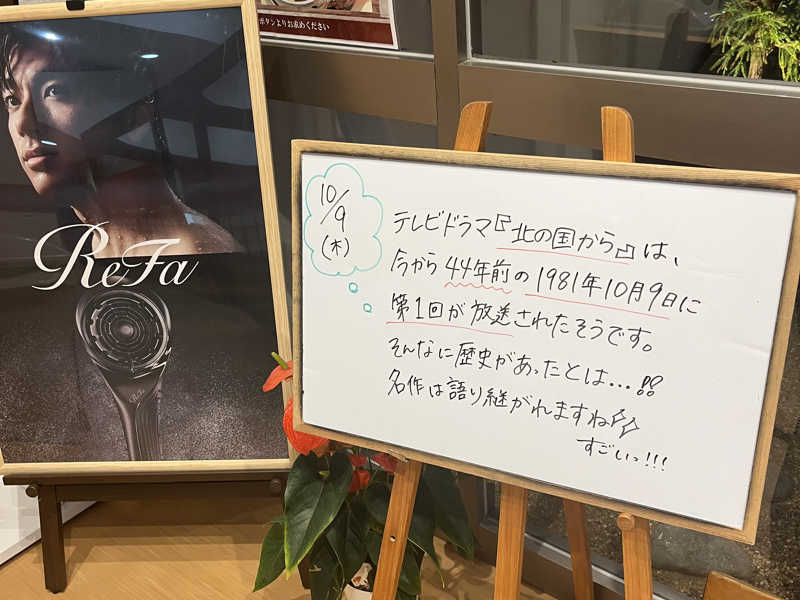 ボタンよりお求めください
ReFa
10/9
(木)
テレビドラマ『北の国から』は、
今から44年前の1981年10月9日に
第1回が放送されたそうです。
そんなに歴史があったとは...!!
名作は語り継がれますね
すごいっ!!!